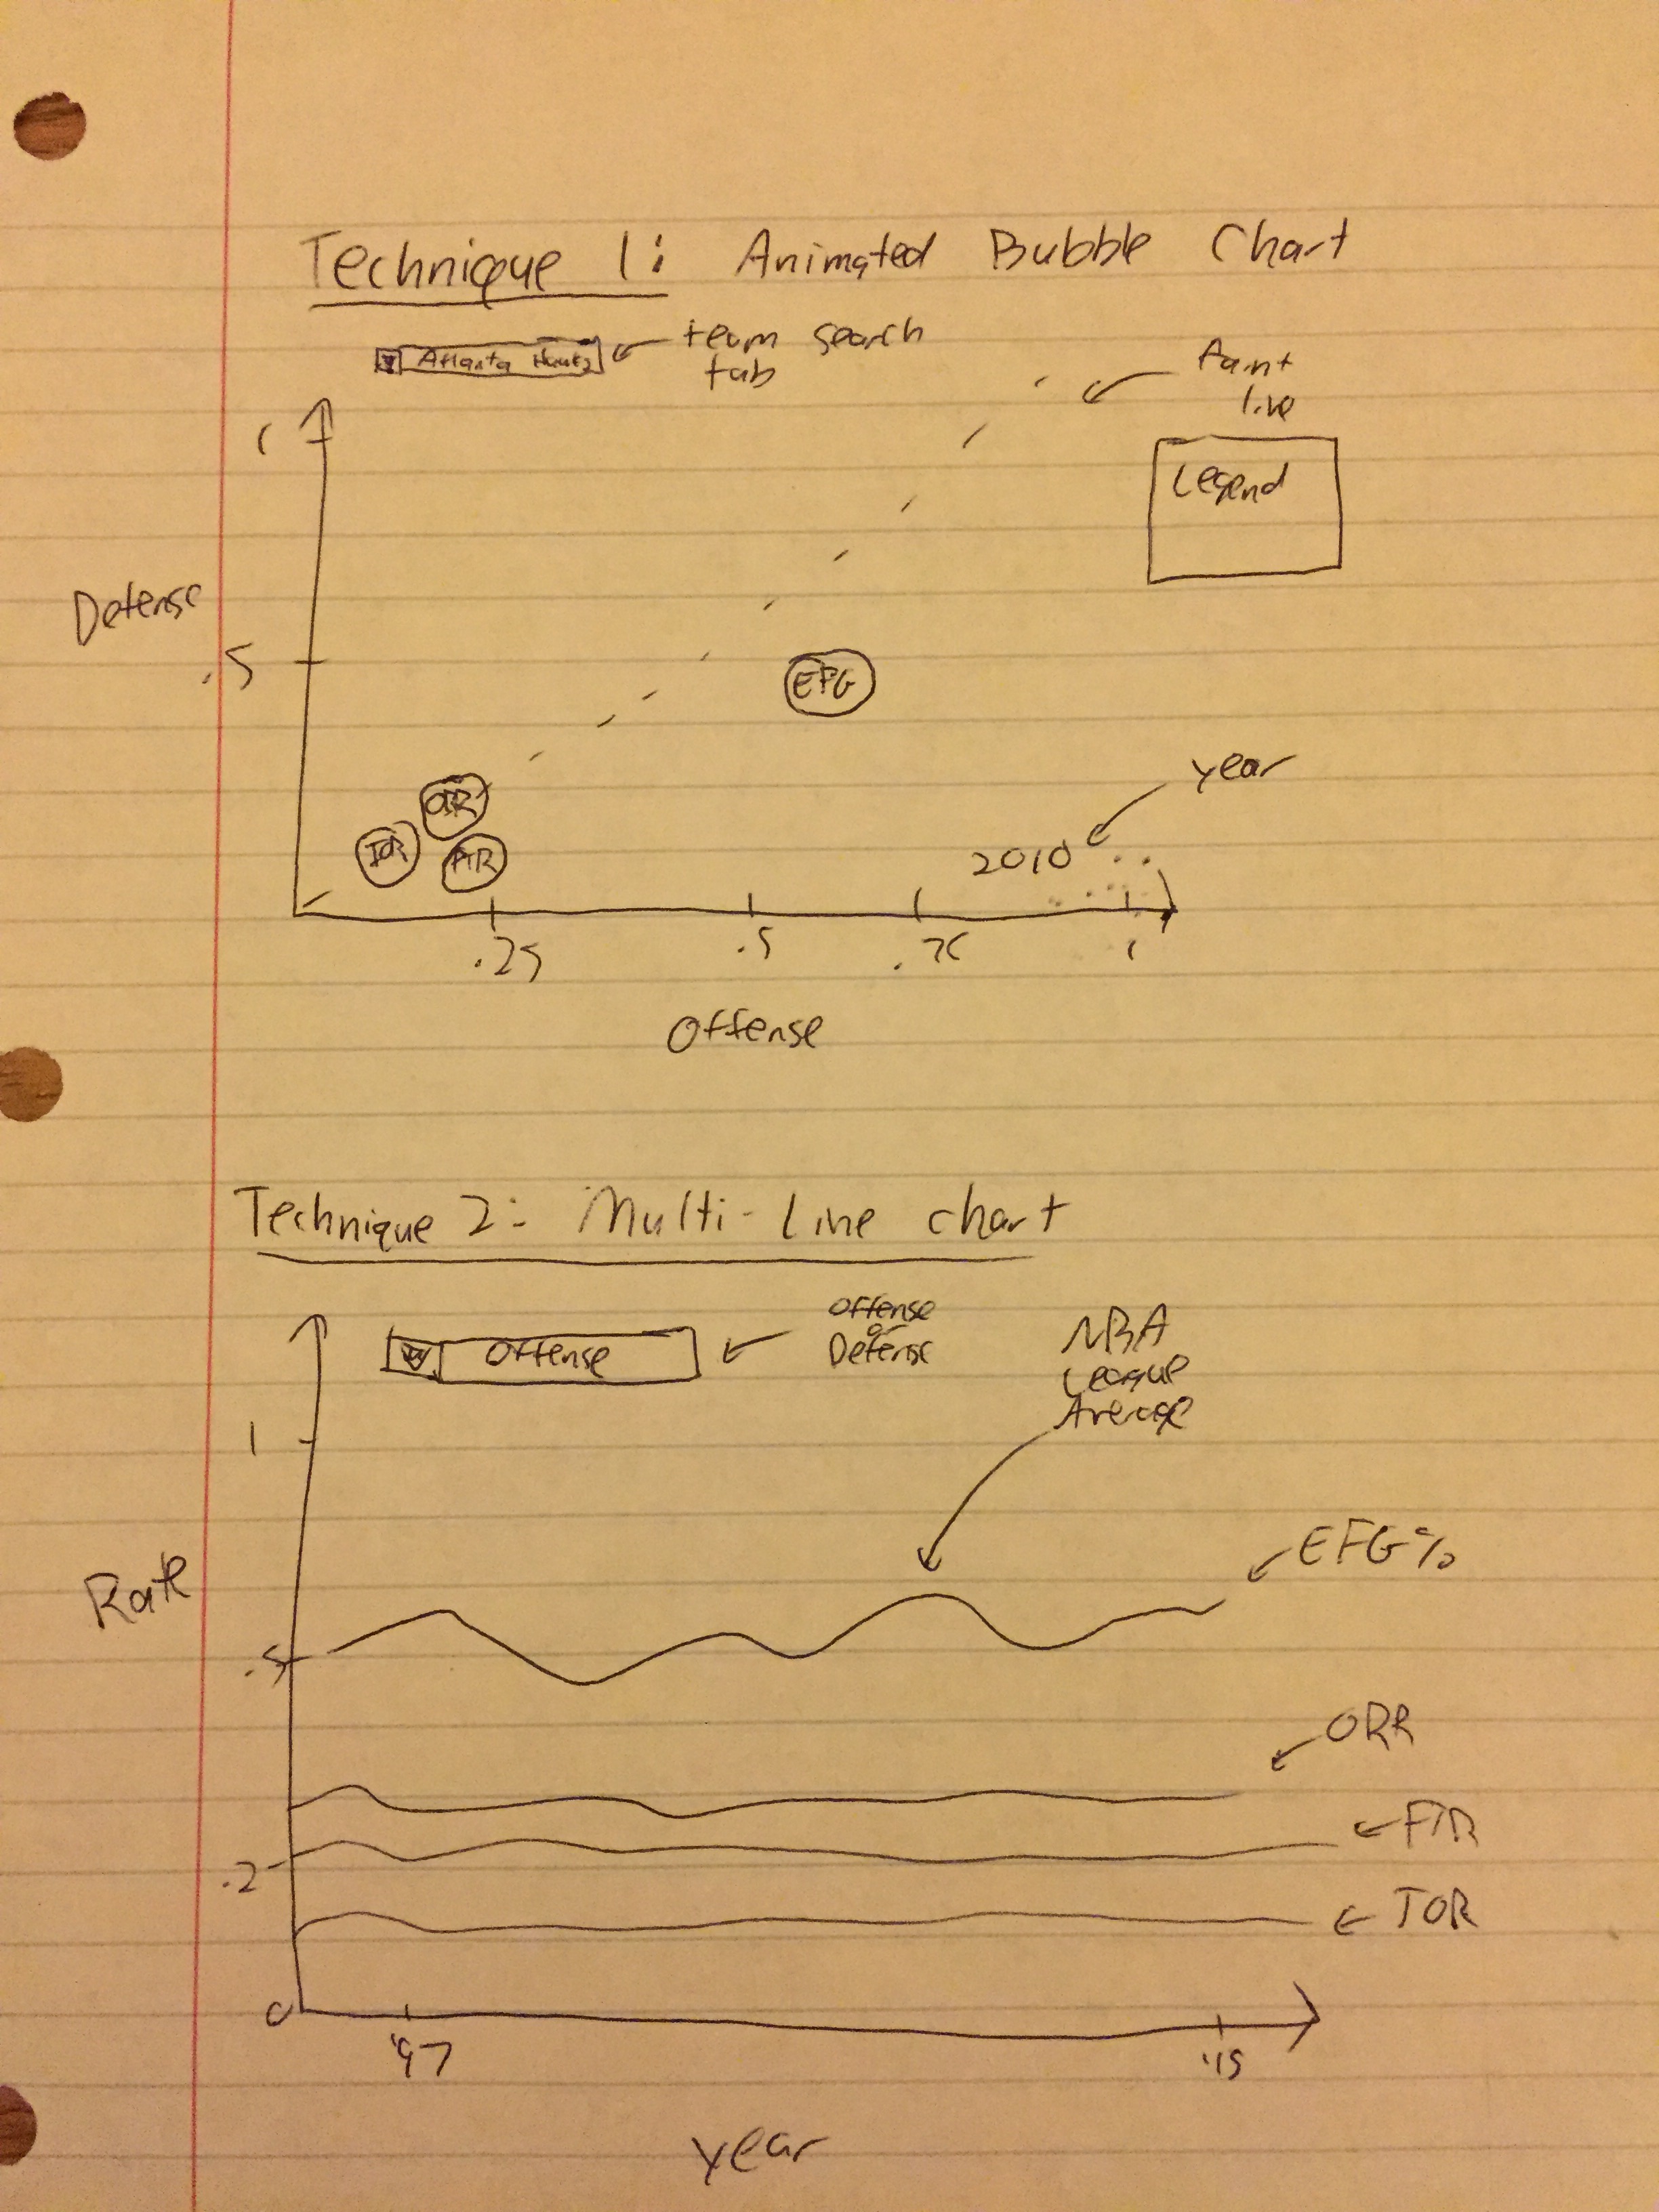 Technique 1: Animated Bubble Chart
Atlanta Hawks
team search
tab
Faint
line
1
Legend
Defense
.5
EFG
year
ORR
TOR
FTR
2010
.25
.5
.75
1
Offense
Technique 2: Multi-Line chart
Offense
Offense
or
Defense
NBA
League
Average
1
EFG%
Rate
.5
ORR
FTR
.2
TOR
0
'97
'15
year